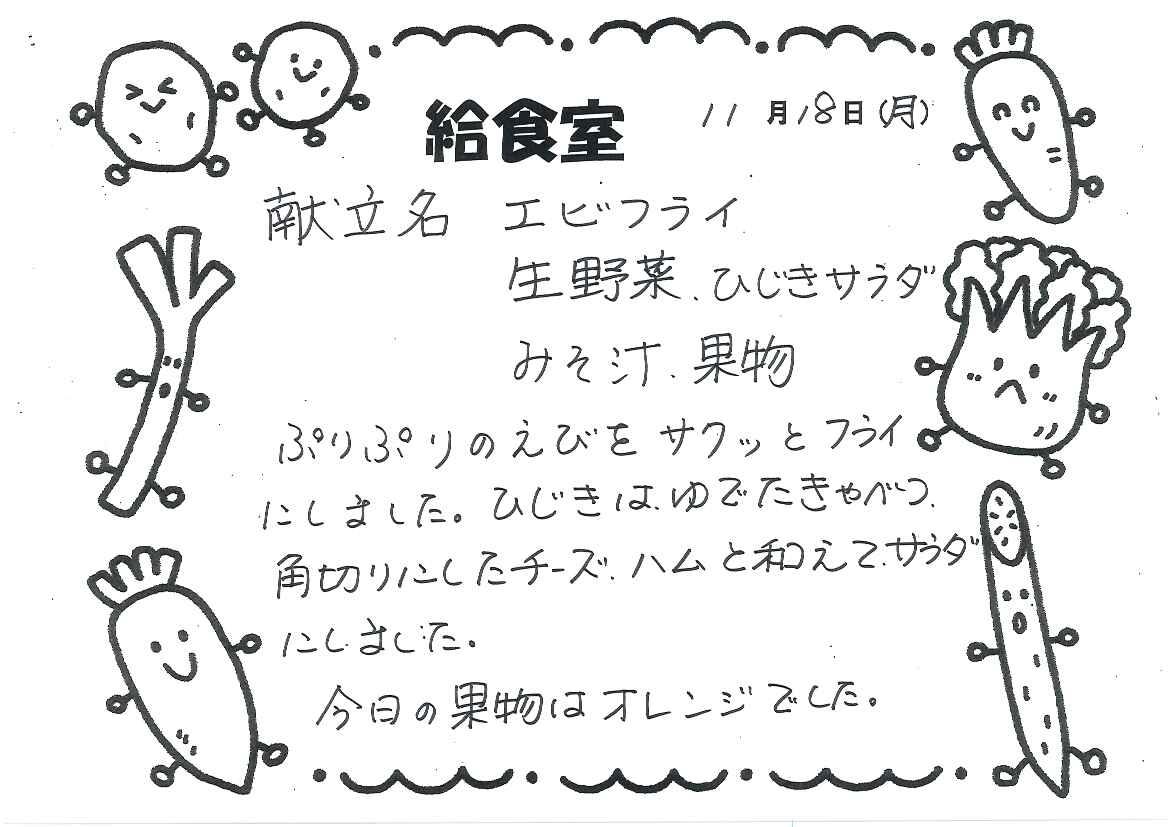 給食室 11月18日(月)
献立名 エビフライ
生野菜、ひじきサラダ
みそ汁、果物
ぷりぷりのえびを サクッと フライ
にしました。ひじきは、ゆでたきゃべつ、
角切りにしたチーズ、ハムと和えて、サラダ
にしました。
今日の果物はオレンジでした。